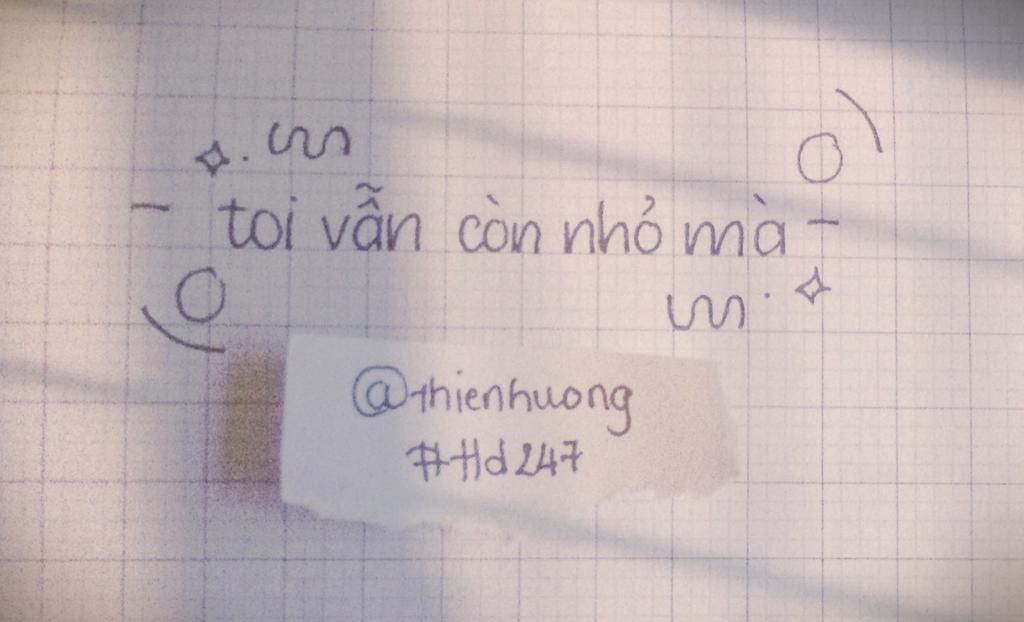 - toi vẫn còn nhỏ mà -
@thienhuong
#Hd247